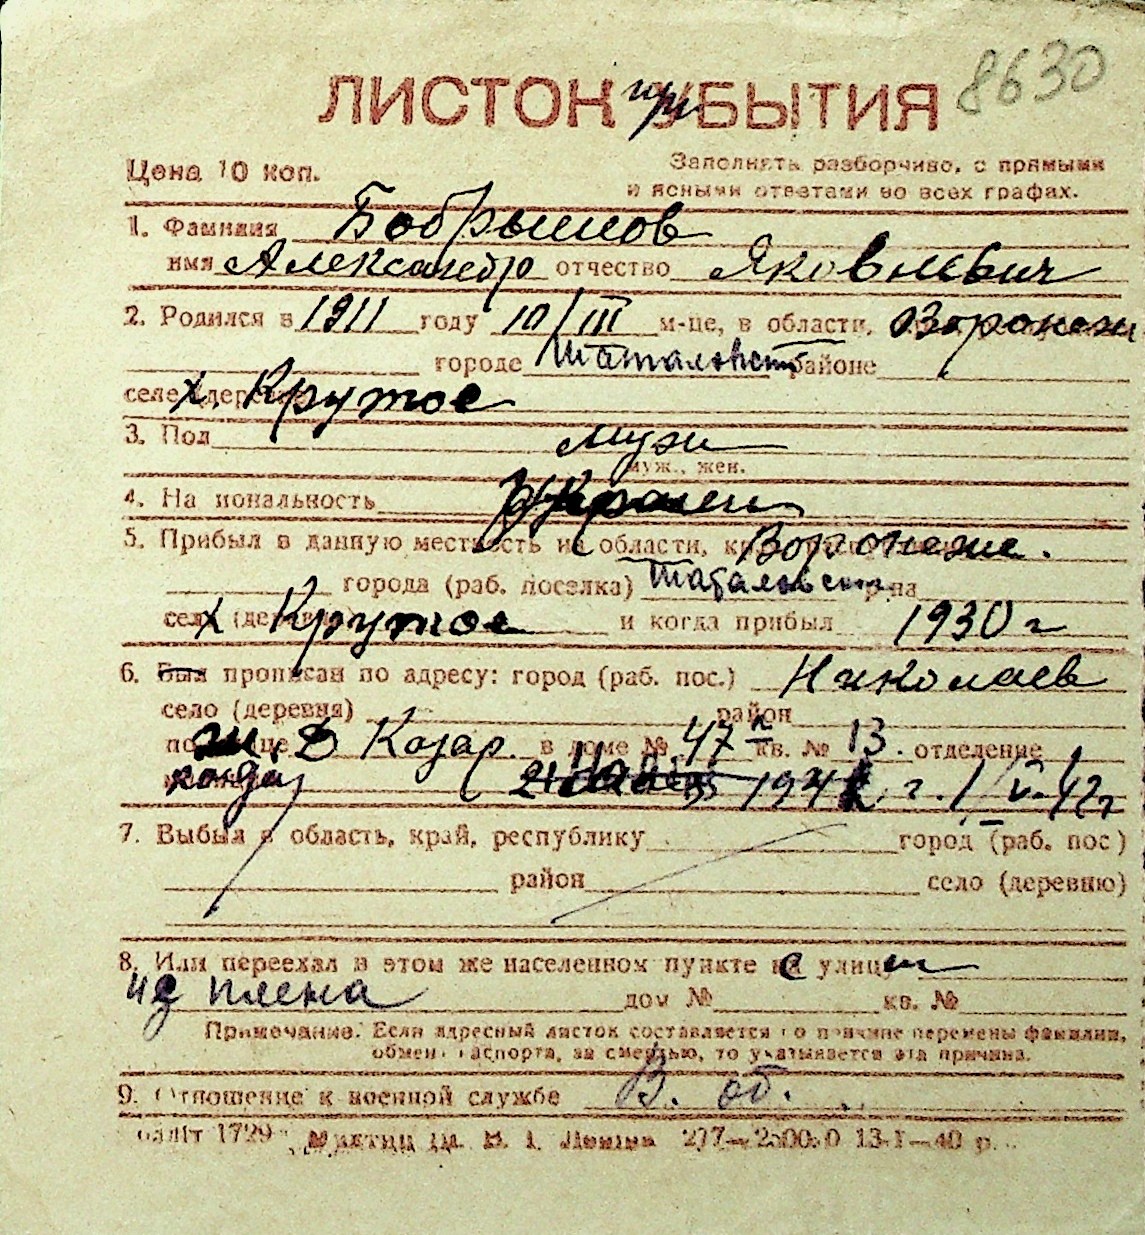 8630
ЛИСТОК при УБЫТИЯ
Цена 10 коп.
Заполнять разборчиво, с прямыми
и ясными ответами во всех графах.
1. Фамилия Бобрышов
имя Александр отчество Яковлевич
2. Родился в 1911 году 10/III м-це, в области, Воронеж
городе Шаталовск районе
селе х. Крутое
3. Пол муж
муж., жен.
4. Национальность
5. Прибыл в данную местность из области, Воронеж.
города (раб. поселка) Шаталовск р-на
села х (деревни) Крутое и когда прибыл 1930 г
6. Был прописан по адресу: город (раб. пос.) Николаев
село (деревня) район
по ул. Б Козар. в доме № 47 а кв. № 13. отделение
когда 21 194 г. 1/V-42г
7. Выбыл в область, край, республику город (раб. пос)
район село (деревню)
8. Или переехал в этом же населенном пункте улиц
из плена дом № кв. №
Примечание. Если адресный листок составляется по причине перемены фамилии,
обмена паспорта, за смертью, то указывается эта причина.
9. Отношение к военной службе В. об.
облліт 1729 ім. В. І. Леніна 277— 13-I—40 р.